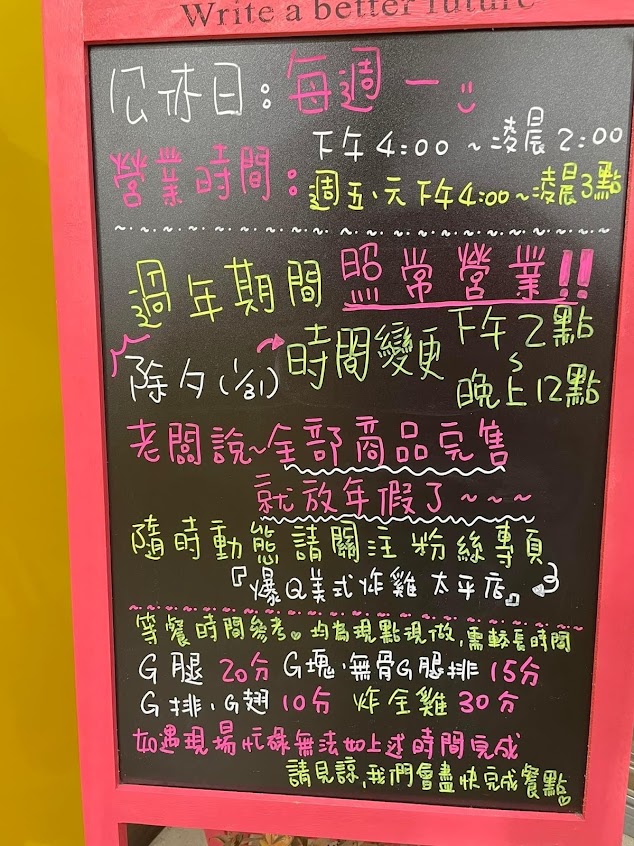 Write a better future
公休日：每週一
下午4:00～凌晨2:00
營業時間：週五、六下午4:00～凌晨3點
過年期間照常營業!!
除夕(1/31)→時間變更下午2點
～
晚上12點
老闆說~全部商品完售
就放年假了~~~
隨時動態請關注粉絲專頁
『爆Q美式炸雞太平店』
等餐時間參考。均為現點現做,需較長時間
G腿 20分 G塊、無骨G腿排 15分
G排、G翅 10分 炸全雞 30分
如遇現場忙碌無法如上述時間完成
請見諒,我們會盡快完成餐點♡